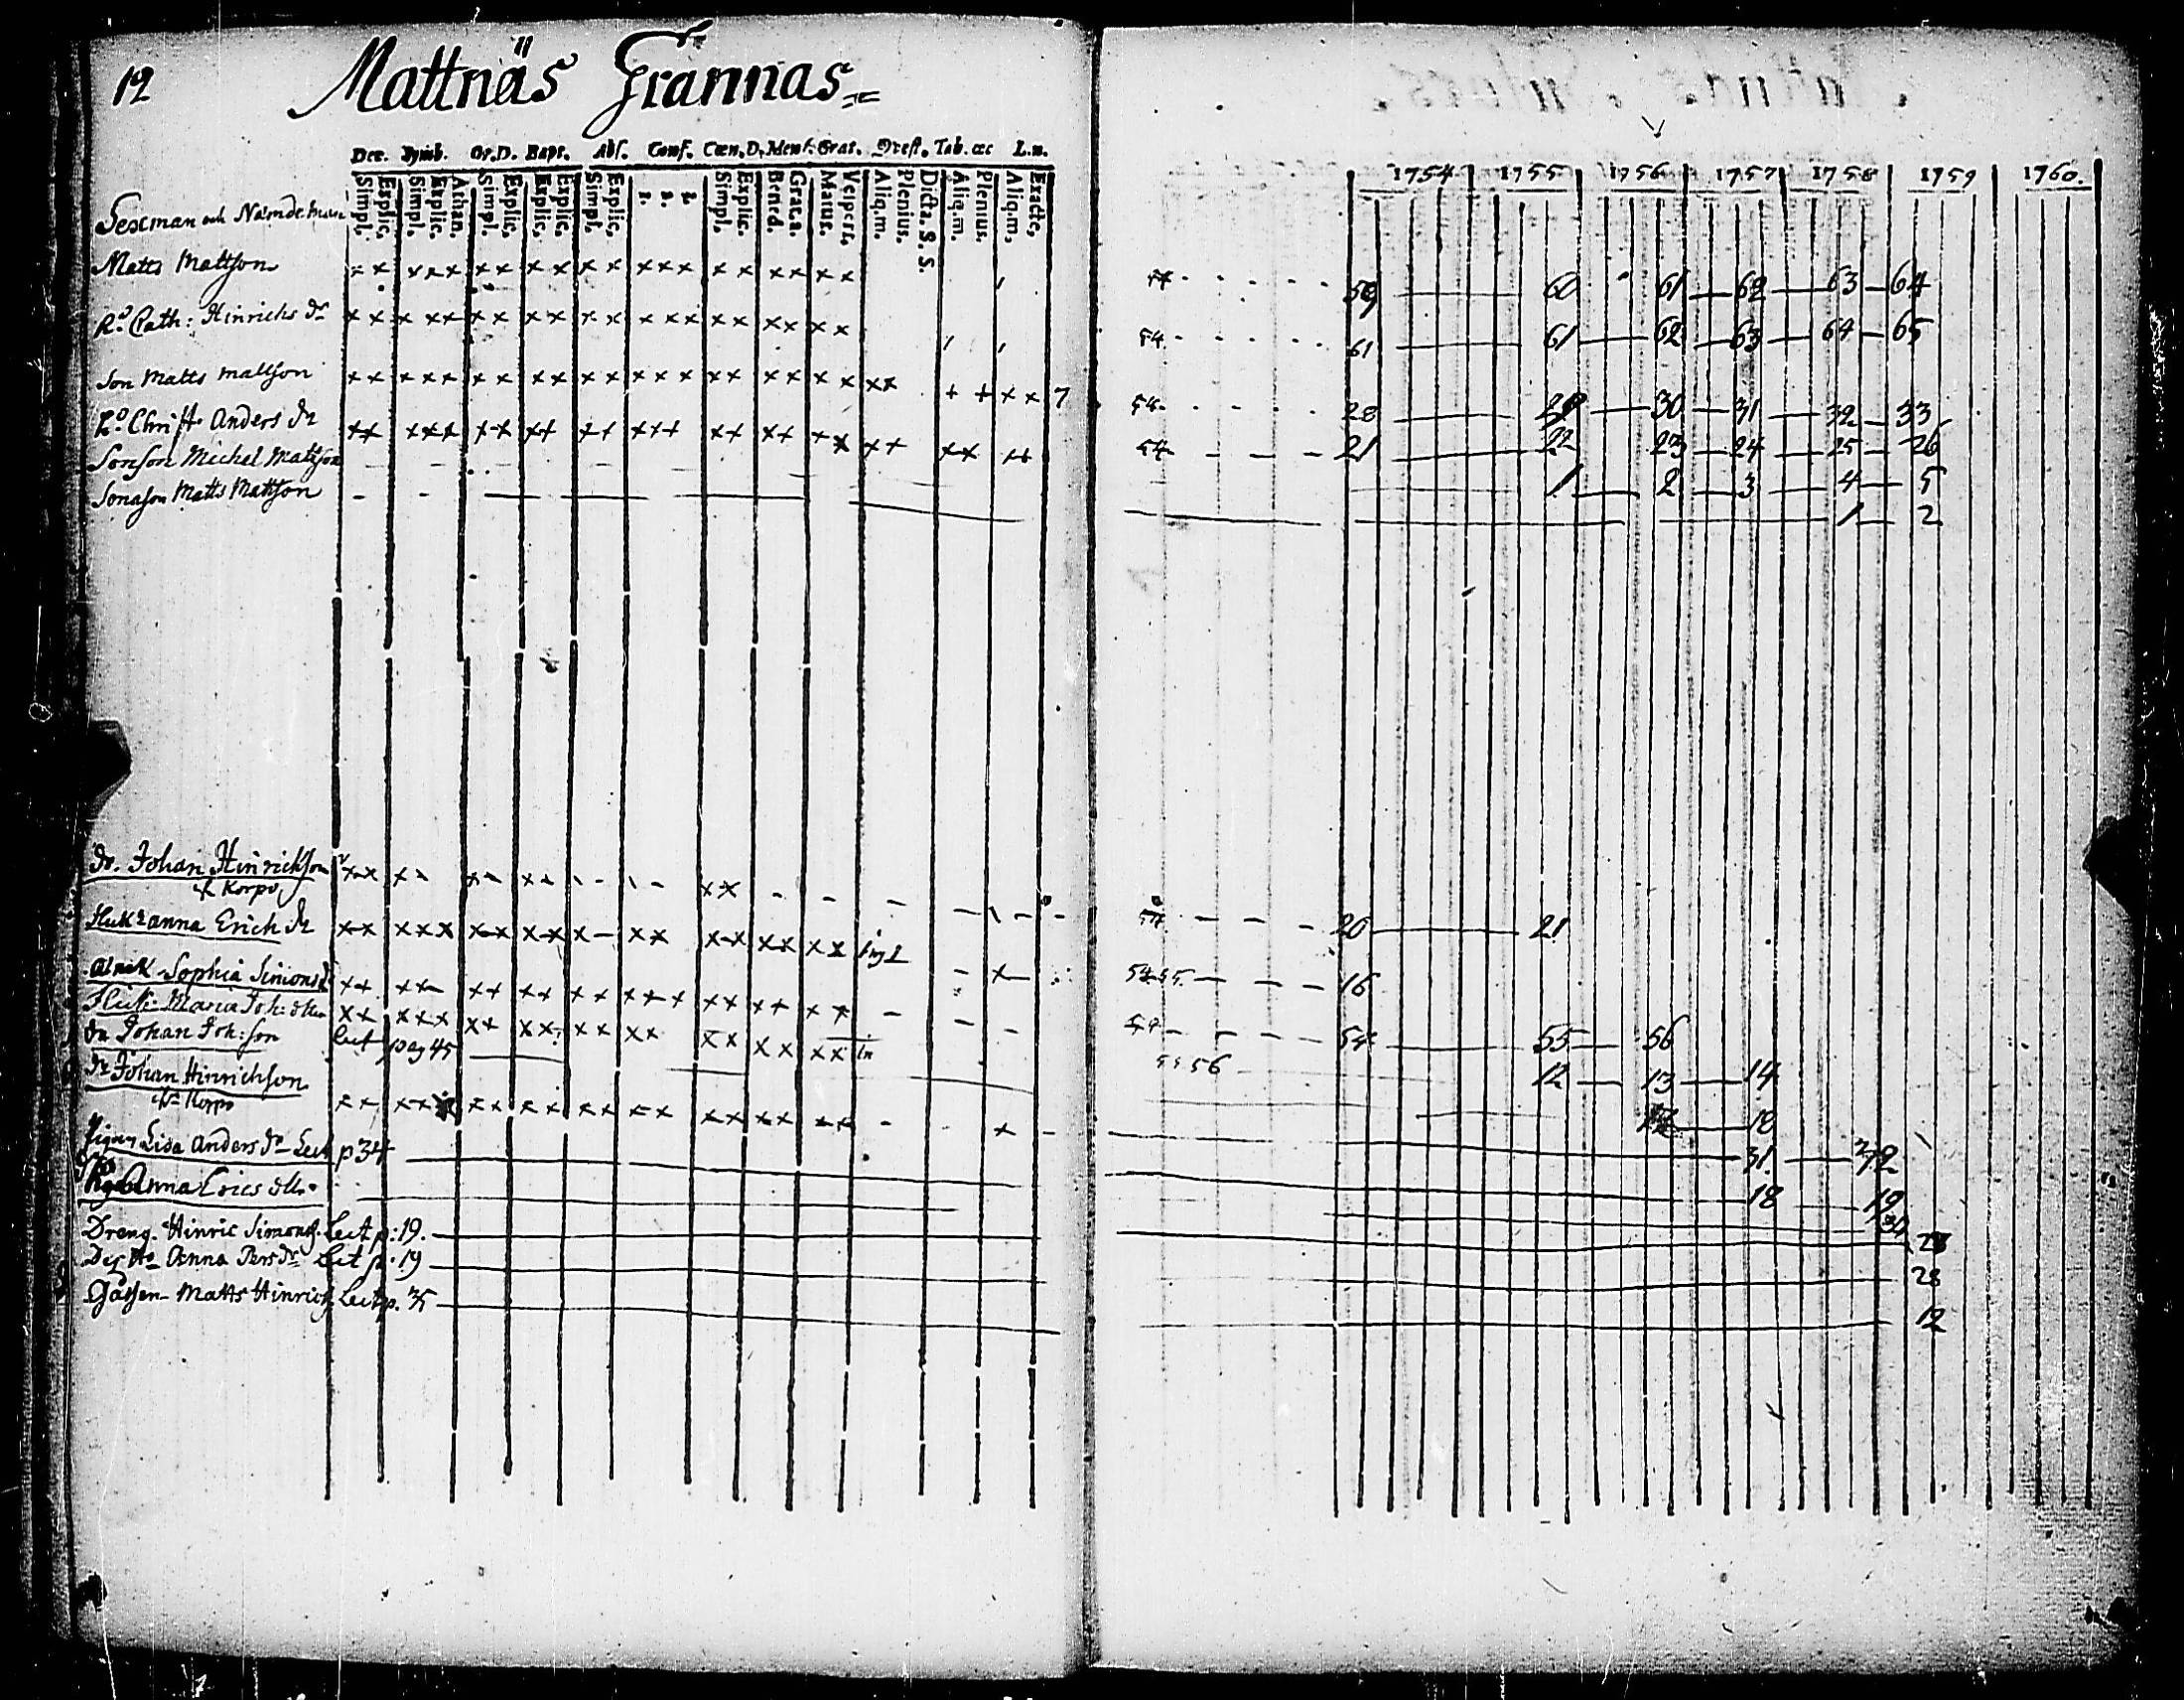 12
Mattnäs Grannas
Dec. Symb. Or.D. Bapt. Abs. Conf. Cœn.D. Mens. Grat. Qvest. Tab. œc L.n.
Simpl. Explic. Simpl. Explic. Athan. Simpl. Explic. Explic. Explic. Simpl. Explic. 1. 2. 3. Simpl. Explic. Bened. Grat.a. Matut. Vespert. Aliq.m. Plenius. Dicta. S. S. Aliq.m. Plenius. Aliq.m. Exacte.
1754 1755 1756 1757 1758 1759 1760.
Sexman och Nämdeman
Matts Mattson 59 60 61 62 63 64
Cath: Hinrichs dr 54 61 61 62 63 64 65
Son Matts Mattson 7 54 28 29 30 31 32 33
Anders dr 54 21 22 23 24 25 26
Sonson Michel Mattson 1 2 3 4 5
Sonason Matts Mattson 1 2
dr. Johan Hinrickson
Korpo
Anna Erich dr 54 20 21
Sophia Simons 54 55 16
Maria Joh: dtter 54 55 56
dr Johan Joh:son lect pag 45 56 12 13 14
dr Johan Hinrichson 18
Korpo
Pigan Lisa Anders dr Lect p 34 31 32
Anna Erics dtr 18 19
Dreng. Hinric Simons. Lect p: 19. 28
Anna Pers dr Lect p. 19 28
Gåssen Matts Hinrics Lect p. 35 12